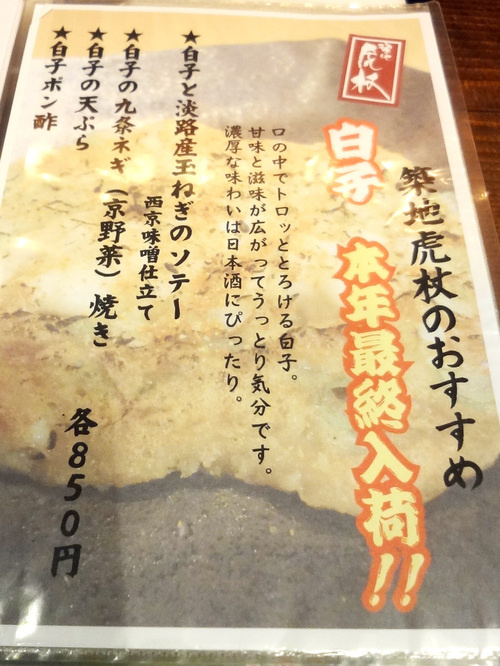 虎杖
築地虎杖のおすすめ
白子 本年最終入荷!!
口の中でトロッととろける白子。
甘味と滋味が広がってうっとり気分です。
濃厚な味わいは日本酒にぴったり。
★白子と淡路産玉ねぎのソテー
西京味噌仕立て
★白子の九条ネギ(京野菜)焼き
★白子の天ぷら
★白子ポン酢
各850円